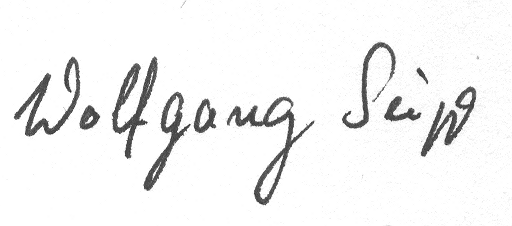 Wolfgang Seipp